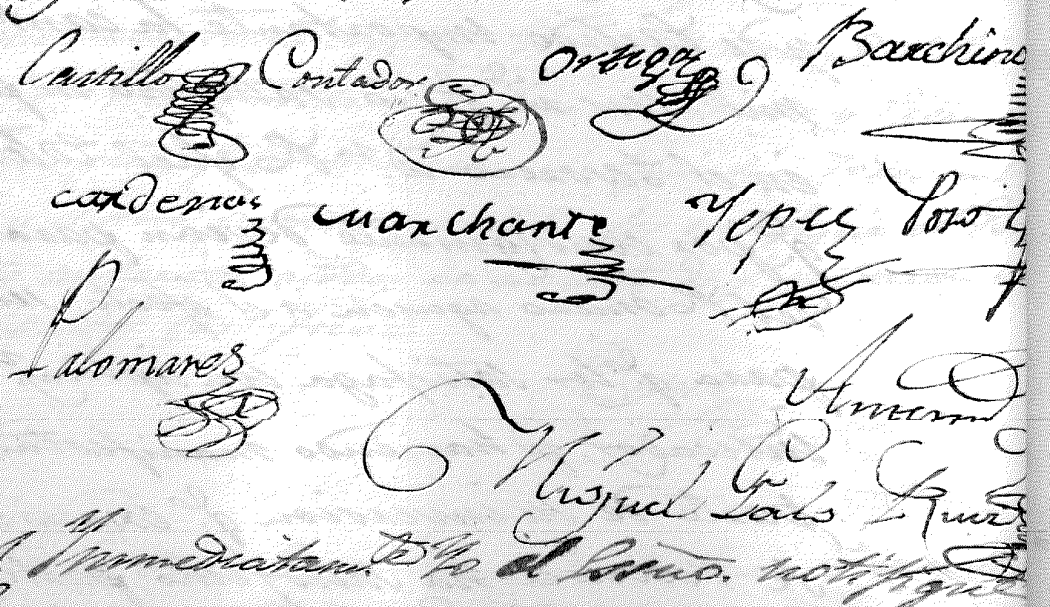 Castillo Contador Ortega Barchino
cardenas marchante Yepes
Palomares
Miguel Ruiz
Immediatam.te Yo el notifique